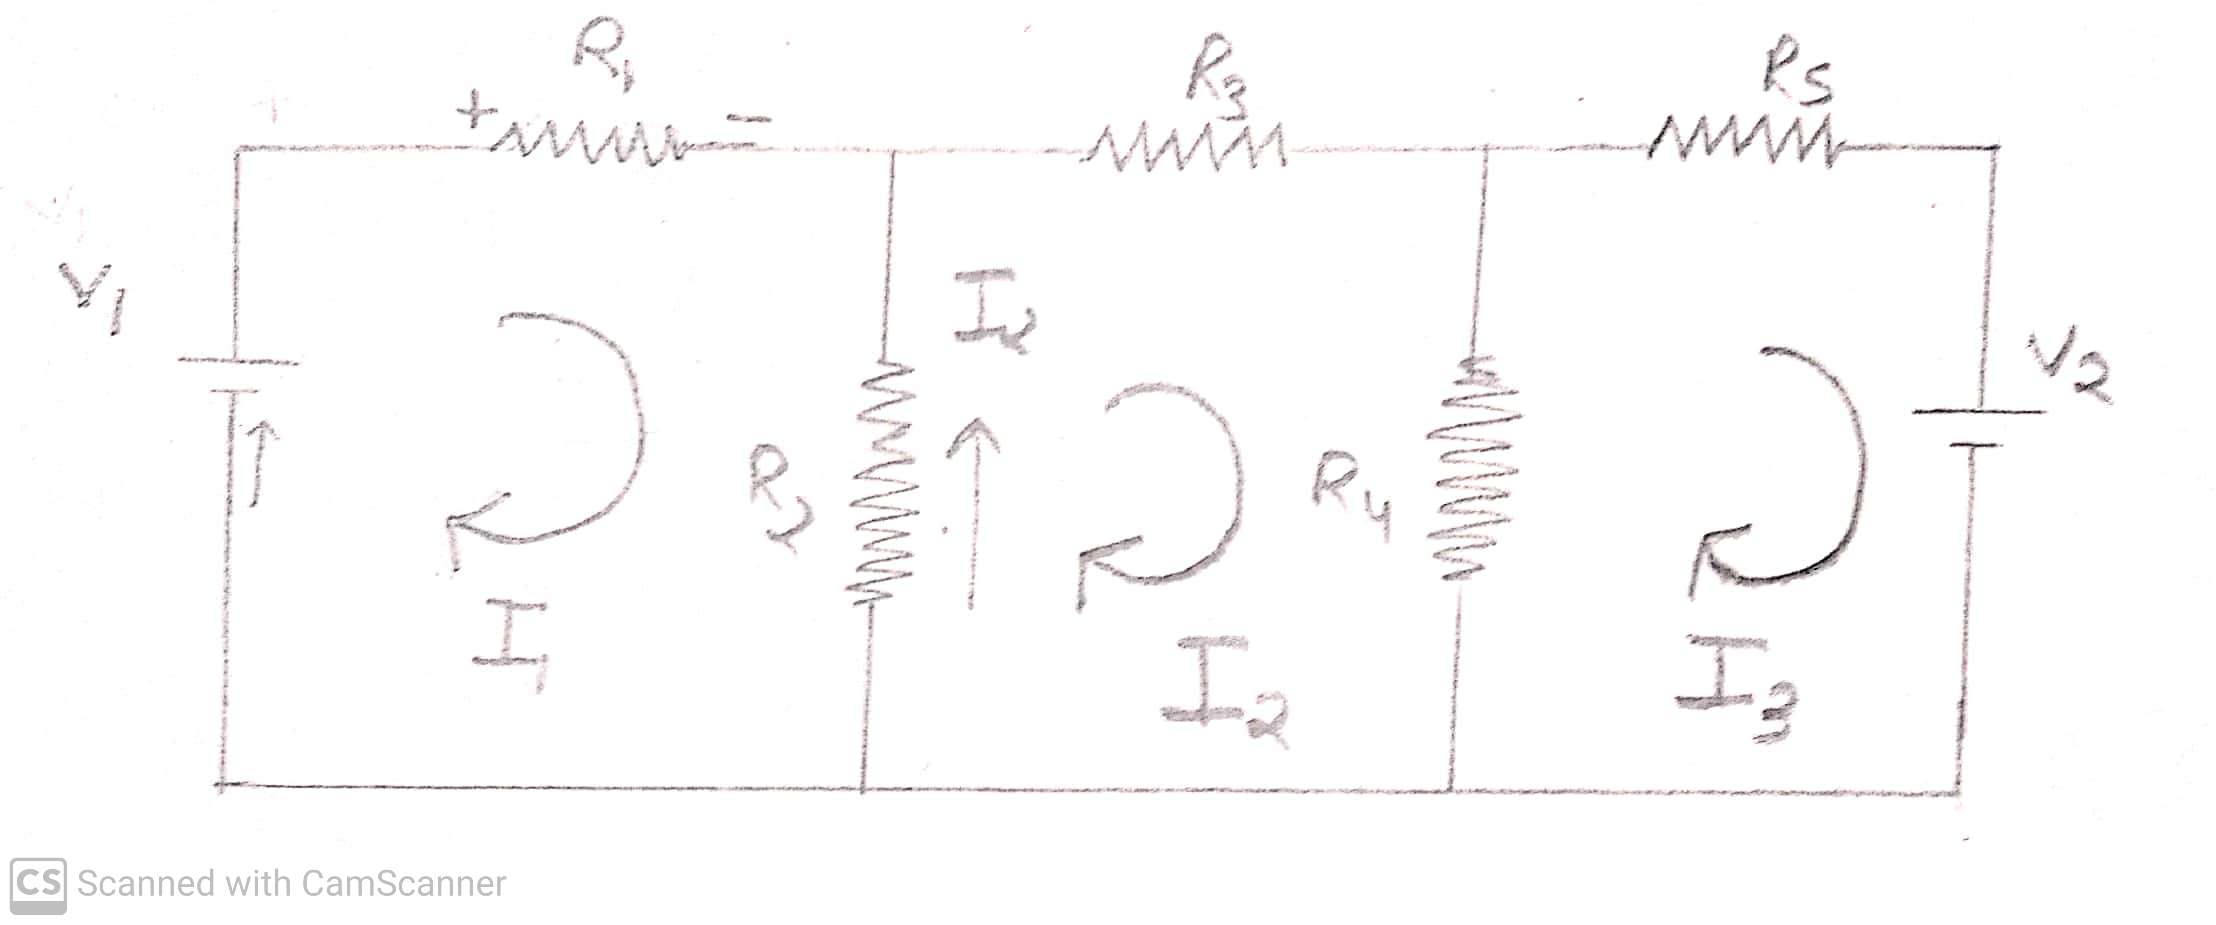 R1
R3
R5
+
-
V1
I2
V2
R2
R4
I1
I2
I3
CS Scanned with CamScanner